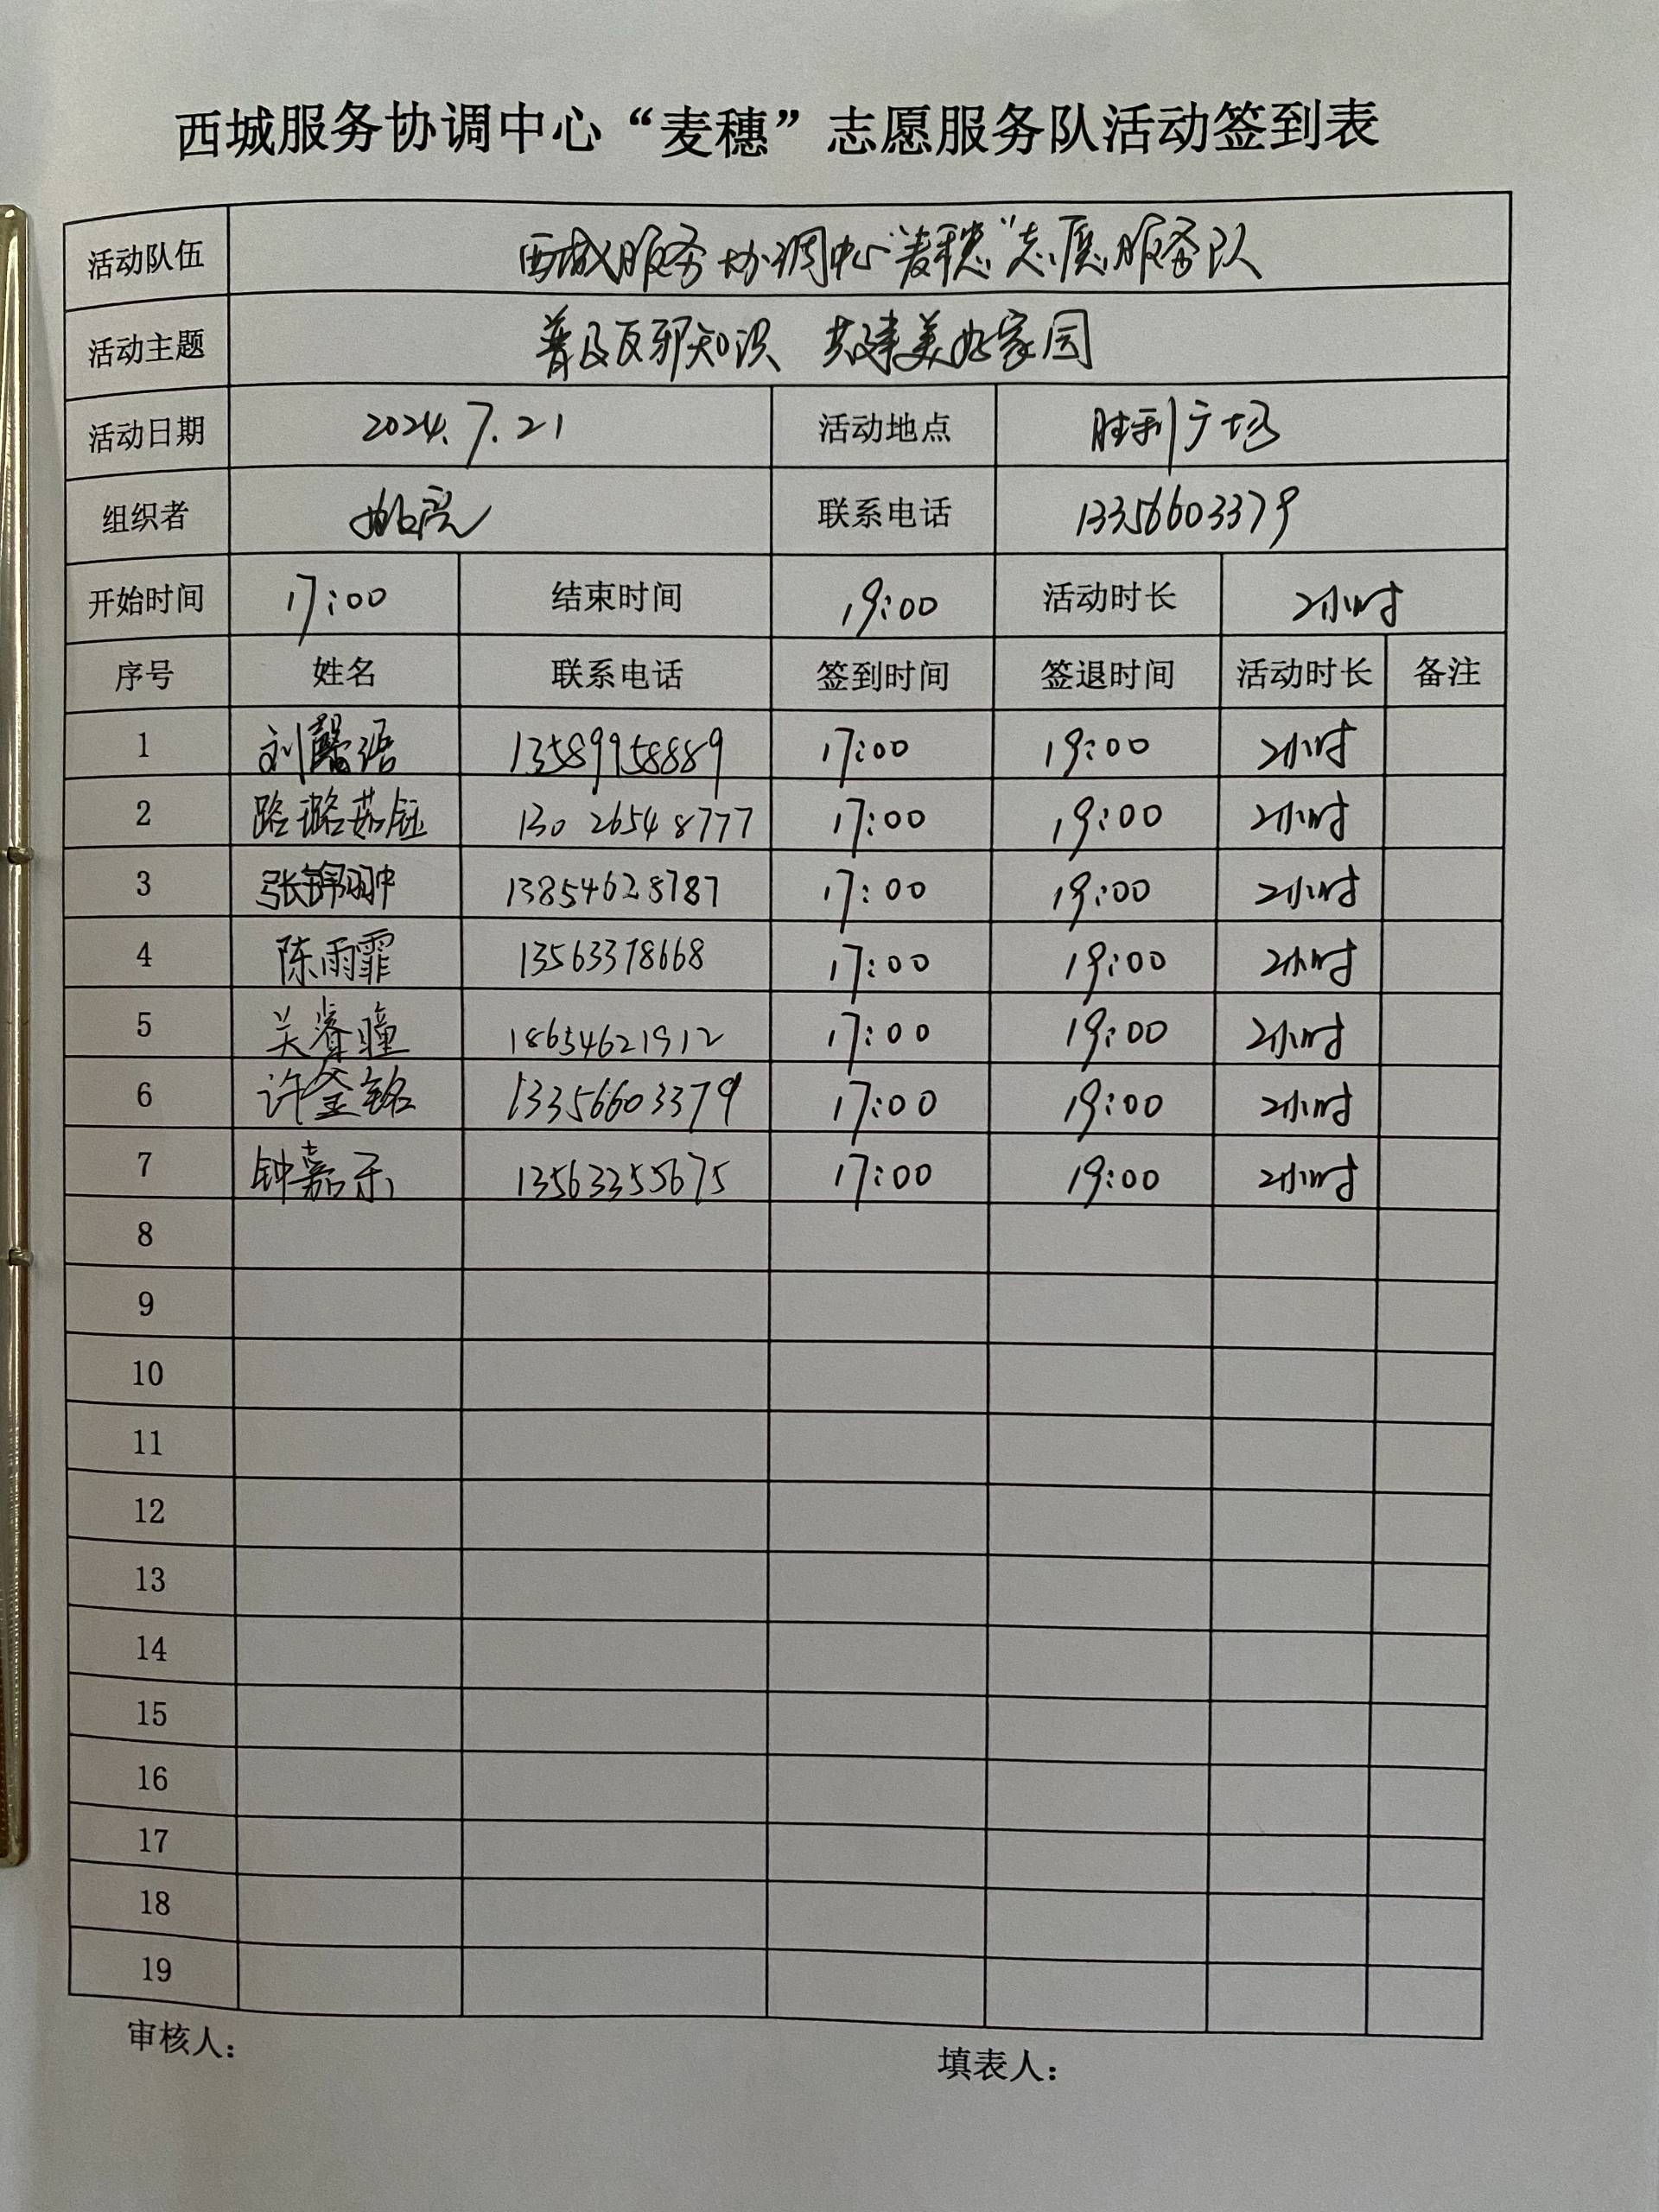 西城服务协调中心“麦穗”志愿服务队活动签到表
活动队伍 西城服务协调中心“麦穗”志愿服务队
活动主题 普及反邪知识 共建美好家园
活动日期 2024.7.21 活动地点 胜利广场
组织者 姚亮 联系电话 13356603379
开始时间 17:00 结束时间 19:00 活动时长 2小时
序号 姓名 联系电话 签到时间 签退时间 活动时长 备注
1 刘馨语 13589958889 17:00 19:00 2小时
2 路璐茹钰 13026548777 17:00 19:00 2小时
3 张锦翀 13854628787 17:00 19:00 2小时
4 陈雨霏 13563378668 17:00 19:00 2小时
5 关睿瞳 18654621912 17:00 19:00 2小时
6 许釜铭 13356603379 17:00 19:00 2小时
7 钟嘉乐 13563355675 17:00 19:00 2小时
8
9
10
11
12
13
14
15
16
17
18
19
审核人： 填表人：